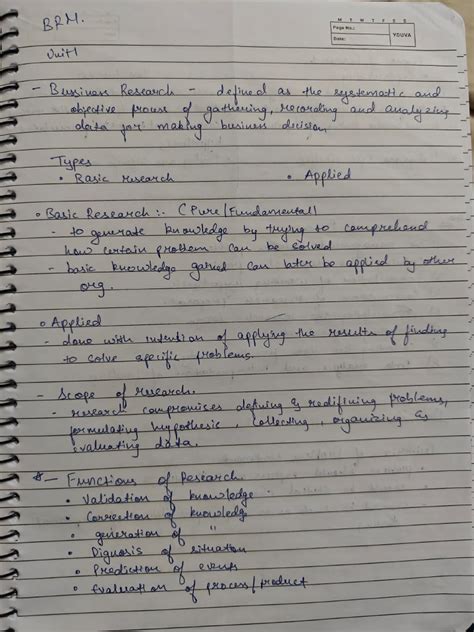 M T W T F S S
Page No.:
Date:
YOUVA
BRM.
Unit 1
- Bussiness Research - defined as the systematic and
objective process of gathering, recording and analyzing
data for making business decision
Types
• Basic research • Applied
• Basic Research :- (Pure/Fundamental)
- to generate knowledge by trying to comprehend
how certain problem can be solved
- basic knowledge gained can later be applied by other
org.
• Applied
- done with intention of applying the results of finding
to solve specific problems.
- Scope of research.
- research compromises defining & redifining problems,
formulating hypothesis, collecting, organizing &
evaluating data.
* - Functions of Research
• Validation of knowledge
• Correction of knowledge
• generation of "
• Dignosis of situation
• Prediction of events
• Evaluation of process/product